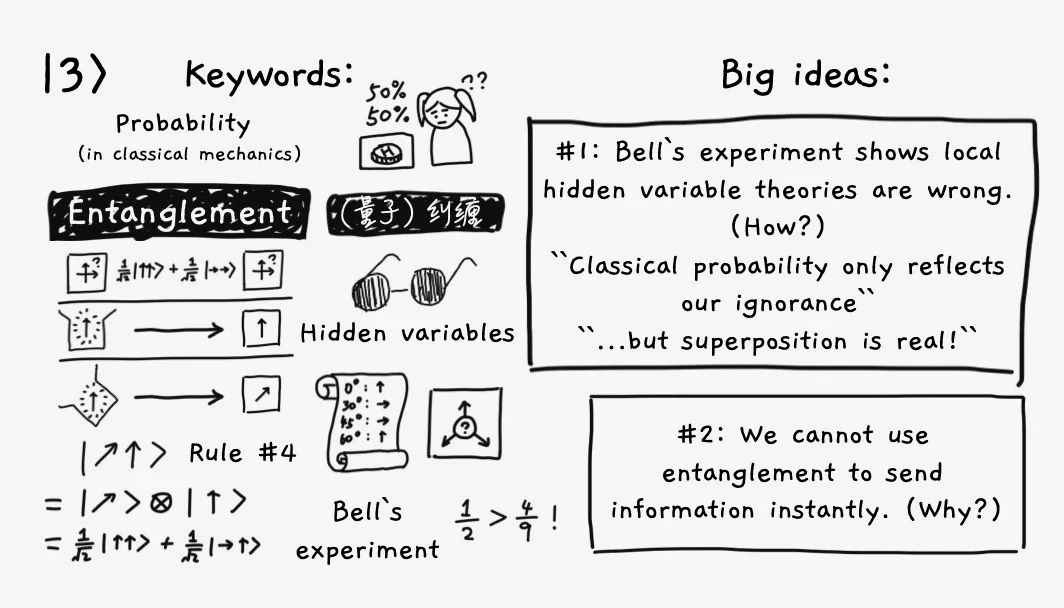 |3⟩
Keywords:
Probability
(in classical mechanics)
50%
50%
??
H
Entanglement
(量子) 纠缠
? 1/√2|↑↑⟩ + 1/√2|→→⟩ ?
Hidden variables
0°: ↑
30°: →
45°: →
60°: ↑
?
|↗↑⟩ Rule #4
= |↗⟩⊗|↑⟩
= 1/√2|↑↑⟩ + 1/√2|→↑⟩
Bell`s
experiment
1/2 > 4/9 !
Big ideas:
#1: Bell`s experiment shows local
hidden variable theories are wrong.
(How?)
``Classical probability only reflects
our ignorance``
``...but superposition is real!``
#2: We cannot use
entanglement to send
information instantly. (Why?)